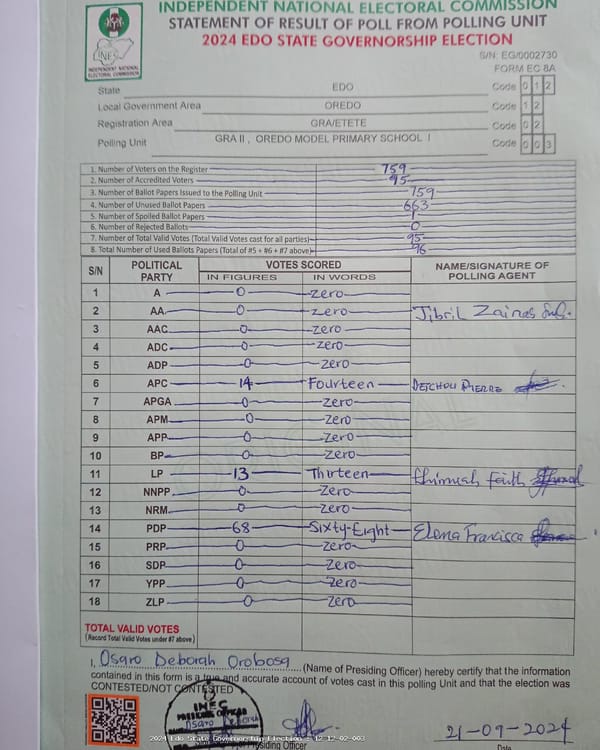 INDEPENDENT NATIONAL ELECTORAL COMMISSION
STATEMENT OF RESULT OF POLL FROM POLLING UNIT
2024 EDO STATE GOVERNORSHIP ELECTION
INEC
INDEPENDENT NATIONAL
ELECTORAL COMMISSION
S/N: EG/0002730
FORM EC 8A
State EDO Code 0 1 2
Local Government Area OREDO Code 1 2
Registration Area GRA/ETETE Code 0 2
Polling Unit GRA II, OREDO MODEL PRIMARY SCHOOL I Code 0 0 3
1. Number of Voters on the Register 759
2. Number of Accredited Voters 95
3. Number of Ballot Papers Issued to the Polling Unit 759
4. Number of Unused Ballot Papers 663
5. Number of Spoiled Ballot Papers 1
6. Number of Rejected Ballots 0
7. Number of Total Valid Votes (Total Valid Votes cast for all parties) 95
8. Total Number of Used Ballots Papers (Total of #5 + #6 + #7 above) 96
S/N POLITICAL PARTY VOTES SCORED NAME/SIGNATURE OF POLLING AGENT
IN FIGURES IN WORDS
1 A 0 Zero
2 AA 0 Zero Jibril
3 AAC 0 Zero
4 ADC 0 Zero
5 ADP 0 Zero
6 APC 14 Fourteen PIERRE
7 APGA 0 Zero
8 APM 0 Zero
9 APP 0 Zero
10 BP 0 Zero
11 LP 13 Thirteen Faith
12 NNPP 0 Zero
13 NRM 0 Zero
14 PDP 68 Sixty-Eight Elema Francisca
15 PRP 0 Zero
16 SDP 0 Zero
17 YPP 0 Zero
18 ZLP 0 Zero
TOTAL VALID VOTES
(Record Total Valid Votes under #7 above)
I, Osaro Deborah Orobosa (Name of Presiding Officer) hereby certify that the information
contained in this form is a true and accurate account of votes cast in this polling Unit and that the election was
CONTESTED/NOT CONTESTED
INEC
PRESIDING OFFICER
21-09-2024
2024 Edo State Governorship Election - 12-12-02-003
Presiding Officer Date